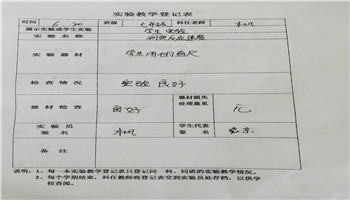 实验教学登记表
时间 6.20 班级 七年级 科任老师
演示实验或学生实验 学生实验
实验名称 测定反应速度
实验器材 学生用的直尺
检查情况 完好
器材检查 良好 器材损失处理意见 无
实验员签名 学生代表签名
备注
说明：1、每一本实验教学登记表只登记同一科、同班的实验教学情况。
2、每个学期结束，科任教师将登记表交到实验员处存档，以供学
检查阅。